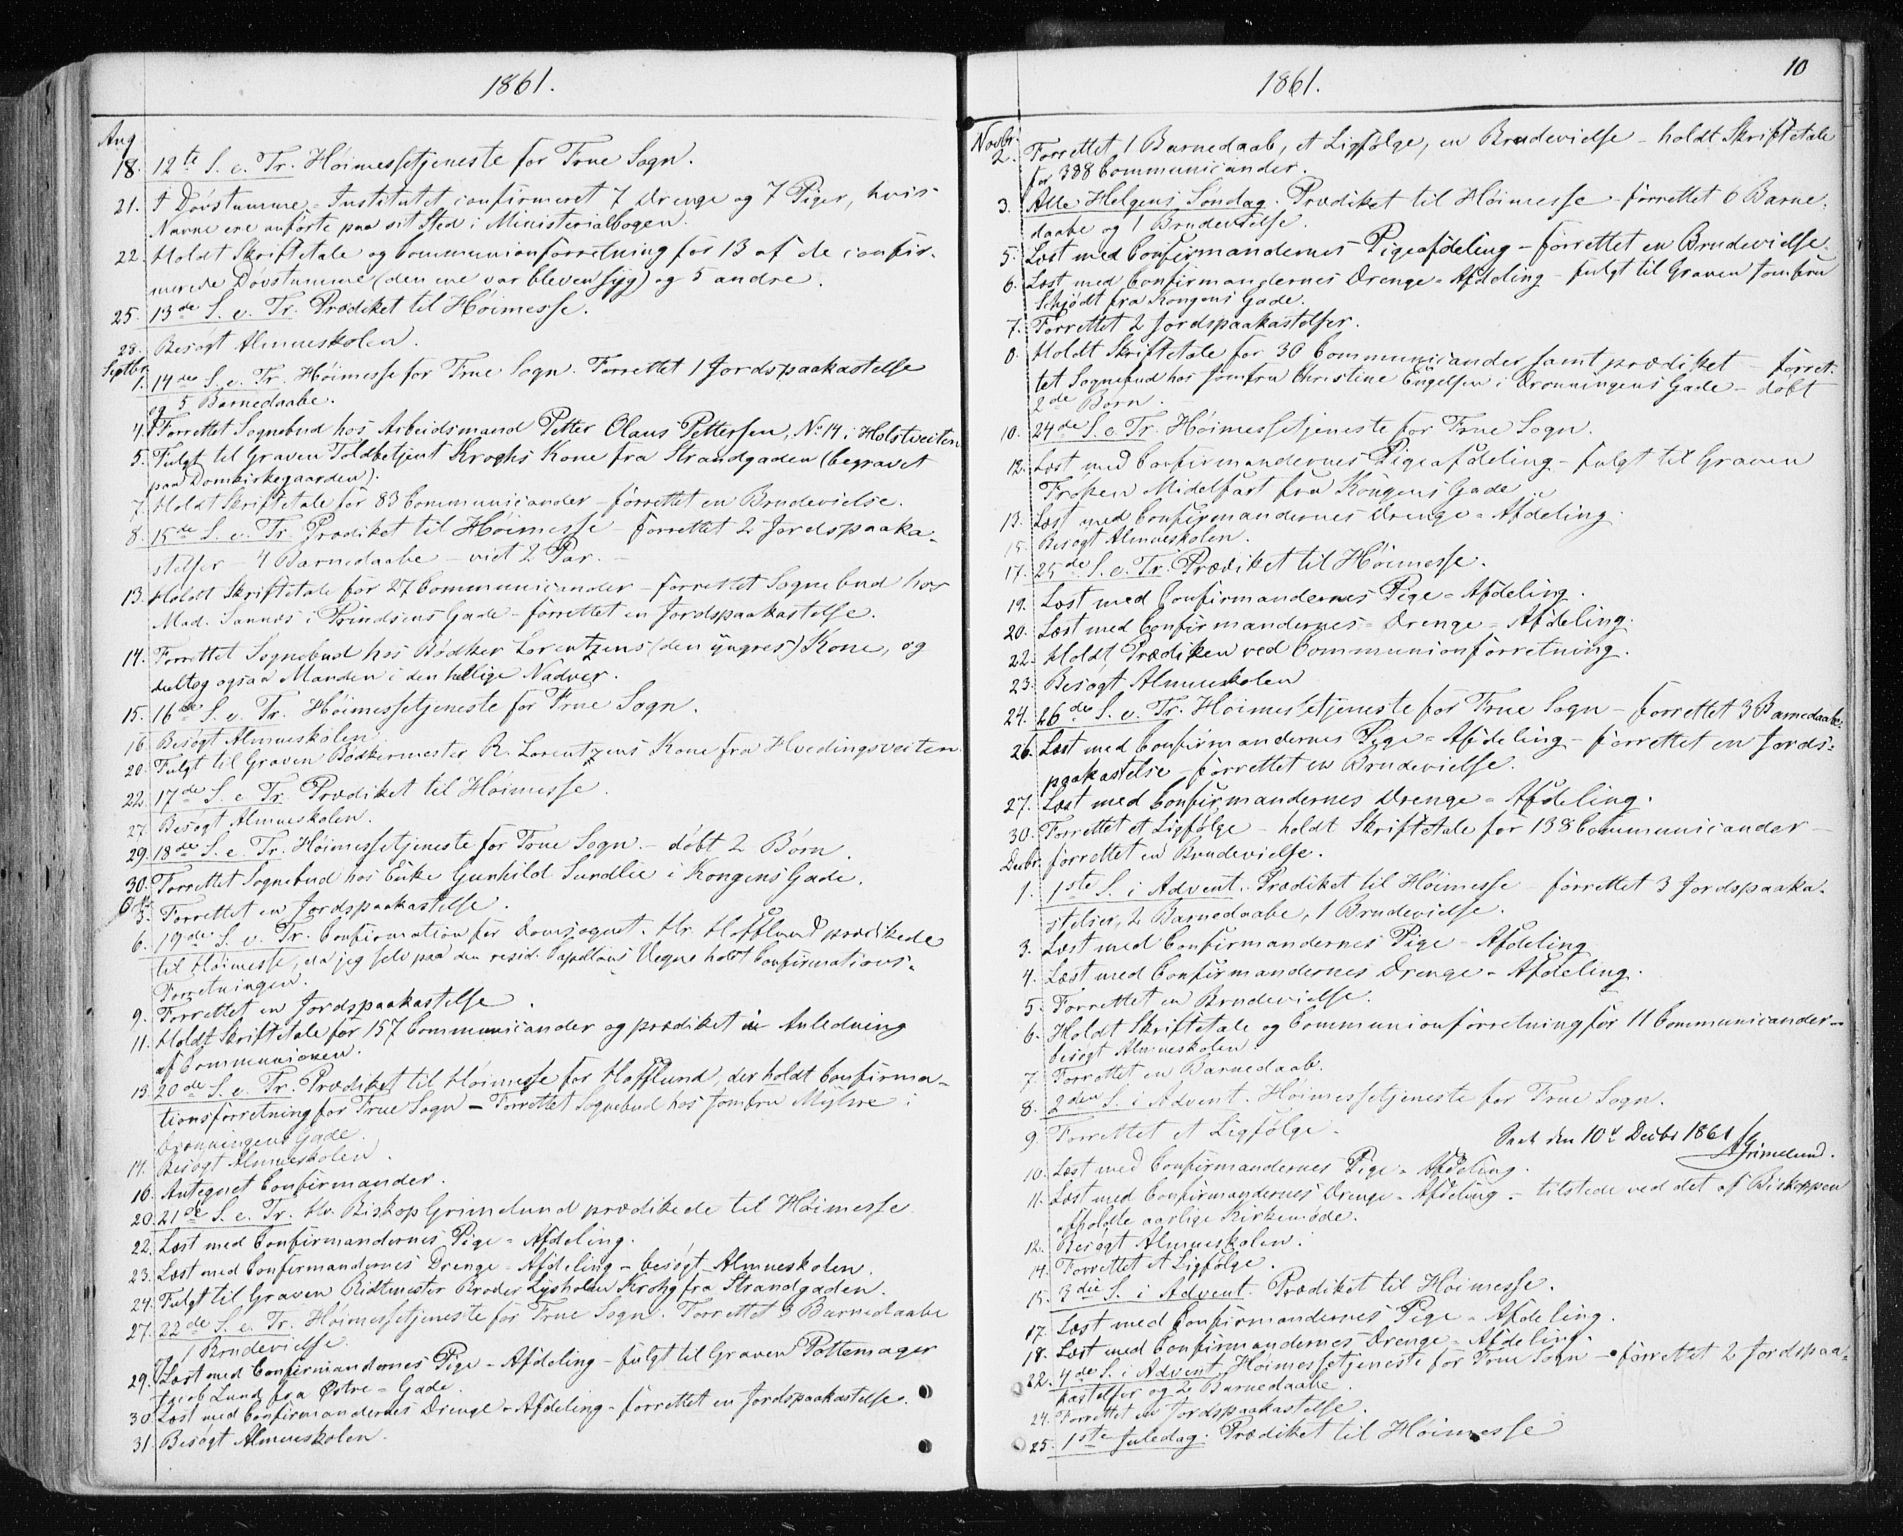 1861.
Aug
18. 12te S. e. Tr. Høimessetjeneste for Frue Sogn.
21. I Døvstumme-Institutet confirmeret 7 Drenge og 7 Piger, hvis
Navne ere anførte paa sit Sted i Ministerialbogen.
22. Holdt Skriftetale og Communionforretning for 13 af de confir-
merede Døvstumme (den ene var bleven syg) og 5 andre.
25. 13de S. e. Tr. Prædiket til Høimesse.
28. Besøgt Almueskolen.
Septbr
1. 14de S. e. Tr. Høimesse for Frue Sogn. Forrettet 1 Jordspaakastelse
og 5 Barnedaabe.
4. Forrettet Sognebud hos Arbeidsmand Petter Olaus Pettersen, No 14 i Holstveiten
5. Fulgt til Graven Toldbetjent Kroghs Kone fra Strandgaden (begravet
paa Domkirkegaarden).
7. Holdt Skriftetale for 83 Communicander - forrettet en Brudevielse.
8. 15de S. e. Tr. Prædiket til Høimesse - forrettet 2 Jordspaaka-
stelser - 4 Barnedaabe - viet 2 Par. -
13. Holdt Skriftetale for 27 Communicander - forrettet Sognebud hos
Mad. Sannes i Prindsens Gade - forrettet en Jordspaakastelse.
14. Forrettet Sognebud hos Bødker Lorentzens (den yngres) Kone, og
deeltog ogsaa Manden i den hellige Nadver.
15. 16de S. e. Tr. Høimessetjeneste for Frue Sogn.
16. Besøgt Almueskolen.
20. Fulgt til Graven Bødkermester R. Lorentzens Kone fra Hvedingsveiten
22. 17de S. e. Tr. Prædiket til Høimesse.
27. Besøgt Almueskolen.
29. 18de S. e. Tr. Høimessetjeneste for Frue Sogn. - døbt 2 Børn.
30. Forrettet Sognebud hos Enke Gunhild Sundlie i Kongens Gade.
Oct
3. Forrettet en Jordspaakastelse.
6. 19de S. e. Tr. Confirmation for Domsognet. Hr. Hofflund prædikede
til Høimesse, da jeg selv paa den resid. Capellans Vegne holdt Confirmations-
Forretningen.
9. Forrettet en Jordspaakastelse.
11. Holdt Skriftetale for 157 Communicander og prædiket i Anledning
af Communionen.
13. 20de S. e. Tr. Prædiket til Høimesse for Hofflund, der holdt Confirma-
tionsforretning for Frue Sogn - Forrettet Sognebud hos Jomfru i
Dronningens Gade.
14. Besøgt Almueskolen.
16. Antegnet Confirmander.
20. 21de S. e. Tr. Hr. Biskop Grimelund prædikede til Høimesse.
22. Læst med Confirmandernes Pige-Afdeling.
23. Læst med Confirmandernes Drenge-Afdeling - besøgt Almueskolen.
24. Fulgt til Graven Broder Lysholm Krohg fra Strandgaden.
27. 22de S. e. Tr. Høimessetjeneste for Frue Sogn. Forrettet 3 Barnedaabe
og 1 Brudevielse.
29. Læst med Confirmandernes Pige-Afdeling - fulgt til Graven Pottemager
Jacob Lund fra Østre-Gade.
30. Læst med Confirmandernes Drenge-Afdeling - forrettet en Jordspaakastelse.
31. Besøgt Almueskolen.
1861.
10
Novbr
2. Forrettet 1 Barnedaab, et Ligfølge, en Brudevielse - holdt Skriftetale
for 388 Communicander.
3. Alle Helgens Søndag. Prædiket til Høimesse - forrettet 6 Barne-
daabe og 1 Brudevielse.
5. Læst med Confirmandernes Pigeafdeling - forrettet en Brudevielse.
6. Læst med Confirmandernes Drenge-Afdeling - fulgt til Graven Jomfru
Schjødt fra Kongens Gade.
7. Forrettet 2 Jordspaakastelser.
8. Holdt Skriftetale for 30 Communicander samt prædiket - forret-
tet Sognebud hos Jomfru Christine Engelsen i Dronningens Gade - døbt
2de Børn.
10. 24de S. e. Tr. Høimessetjeneste for Frue Sogn.
12. Læst med Confirmandernes Pigeafdeling - fulgt til Graven
Frøken Midelfart fra Kongens Gade
13. Læst med Confirmandernes Drenge-Afdeling.
15. Besøgt Almueskolen.
17. 25de S. e. Tr. Prædiket til Høimesse.
19. Læst med Confirmandernes Pige-Afdeling.
20. Læst med Confirmandernes Drenge-Afdeling.
22. Holdt Prædiken ved Communionforretning.
23. Besøgt Almueskolen
24. 26de S. e. Tr. Høimessetjeneste for Frue Sogn - forrettet 3 Barnedaabe.
26. Læst med Confirmandernes Pige-Afdeling - forrettet en Jords-
paakastelse - forrettet en Brudevielse.
27. Læst med Confirmandernes Drenge-Afdeling.
30. Forrettet et Ligfølge - holdt Skriftetale for 138 Communicander -
forrettet en Brudevielse.
Decbr.
1. 1ste S. i Advent. Prædiket til Høimesse - forrettet 3 Jordspaaka-
stelser, 2 Barnedaabe, 1 Brudevielse.
3. Læst med Confirmandernes Pige-Afdeling
4. Læst med Confirmandernes Drenge-Afdeling.
5. Forrettet en Brudevielse.
6. Holdt Skriftetale og Communionforretning for 11 Communicander -
besøgt Almueskolen.
7. Forrettet en Barnedaab.
8. 2den S. i Advent. Høimessetjeneste for Frue Sogn.
9. Forrettet et Ligfølge.
Seet den 10d Decbr 1861 Grimelund.
10. Læst med Confirmandernes Pige-Afdeling.
11. Læst med Confirmandernes Drenge-Afdeling - tilstede ved det af Biskoppen
afholdte aarlige Kirkemøde.
12. Besøgt Almueskolen.
14. Forrettet et Ligfølge.
15. 3die S. i Advent. Prædiket til Høimesse.
17. Læst med Confirmandernes Pige-Afdeling.
18. Læst med Confirmandernes Drenge-Afdeling.
22. 4de S. i Advent. Høimessetjeneste for Frue Sogn - forrettet 2 Jordspaa-
kastelser og 2 Barnedaabe.
24. Forrettet en Jordspaakastelse.
25. 1ste Juledag. Prædiket til Høimesse